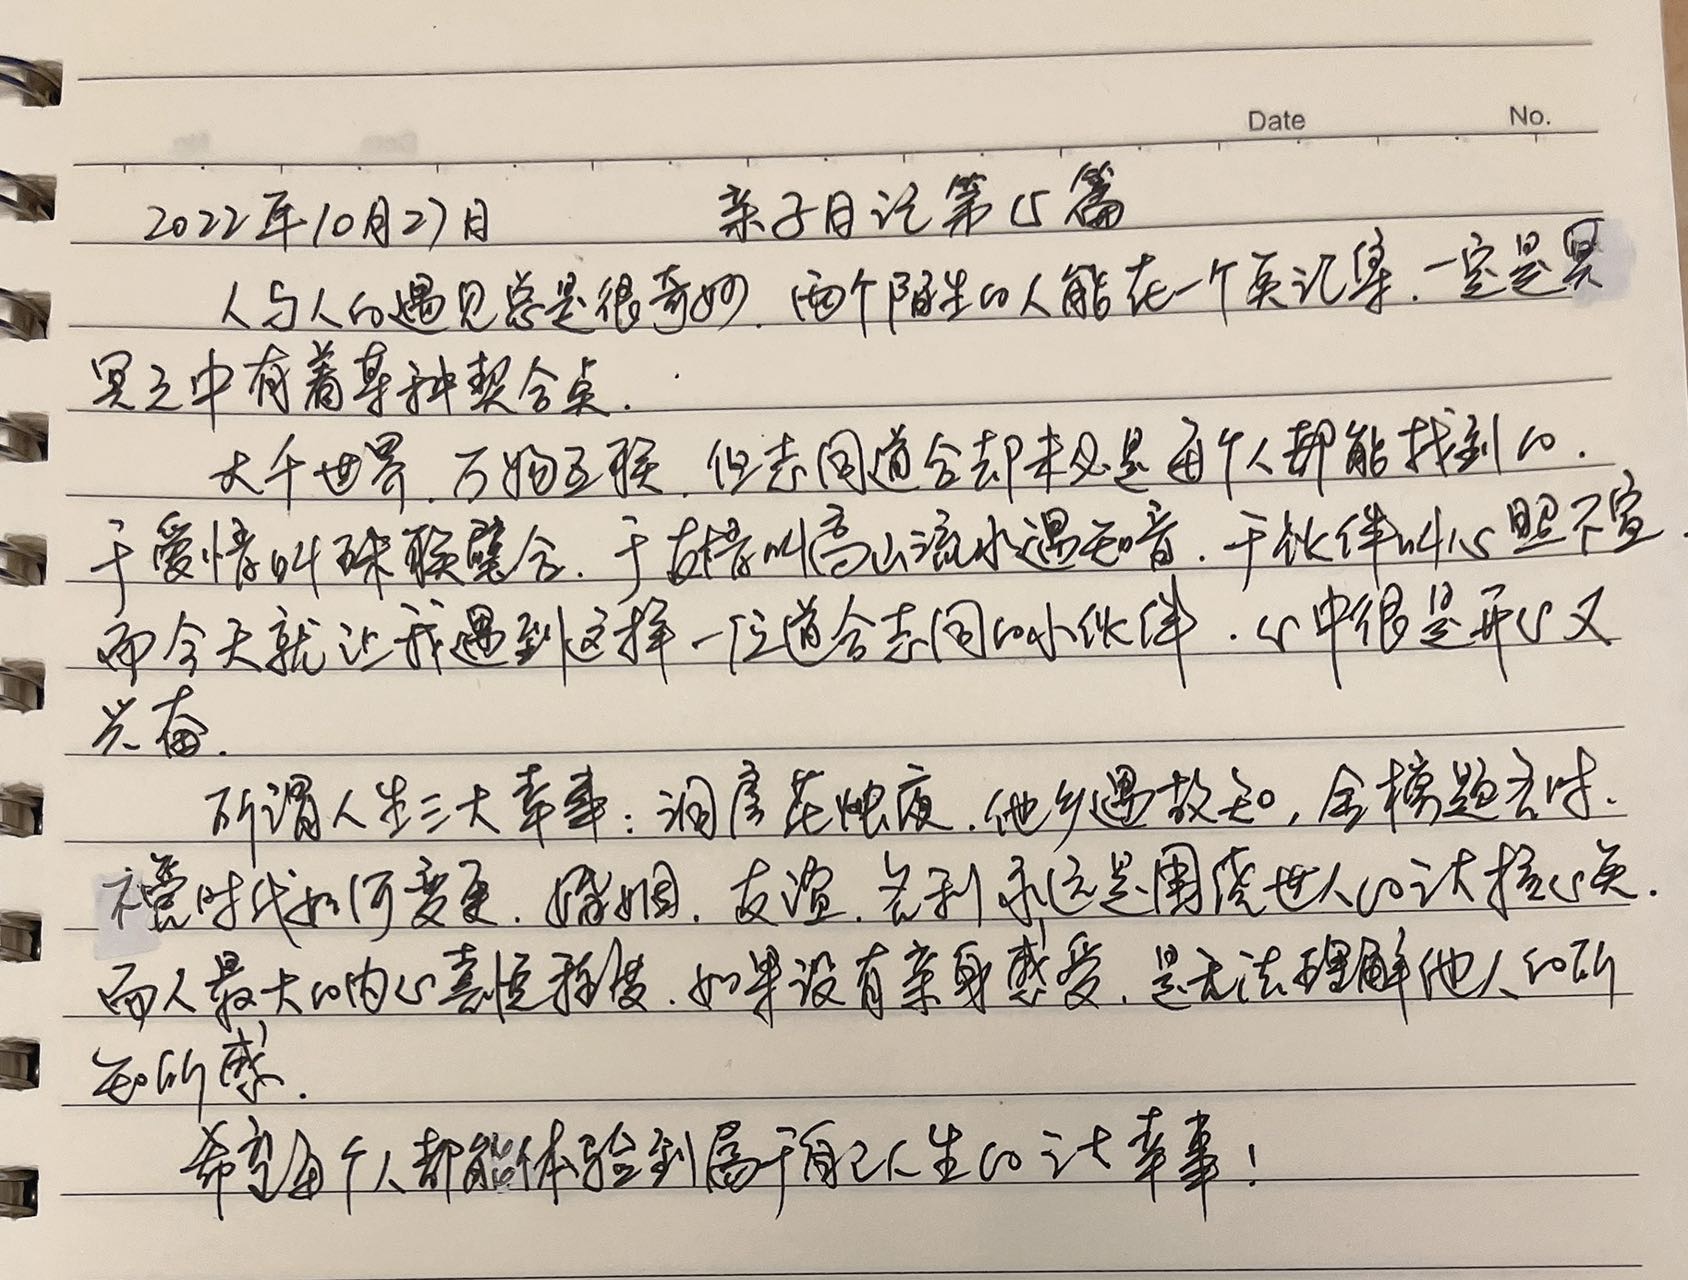 Date No.
2022年10月27日 亲子日记第15篇
人与人的遇见总是很奇妙.两个陌生的人能在一个点汇集.一定是冥
冥之中有着某种契合点.
大千世界.万物互联.但志同道合却未必是每个人都能找到的.
于爱情叫珠联璧合.于友情叫高山流水遇知音.于伙伴叫心照不宣.
而今天就让我遇到这样一位道合志同的小伙伴.心中很是开心又
兴奋.
所谓人生三大幸事:洞房花烛夜.他乡遇故知,金榜题名时.
不管时代如何变更.婚姻.友谊.名利永远是围绕世人的三大核心点.
而人最大的内心喜悦程度.如果没有亲身感受.是无法理解他人的所
知所感.
希望每个人都能体验到属于自己人生的三大幸事!